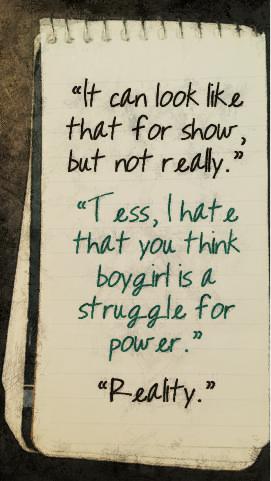 “It can look like
that for show,
but not really.”
“Tess, I hate
that you think
boygirl is a
struggle for
power.”
“Reality.”